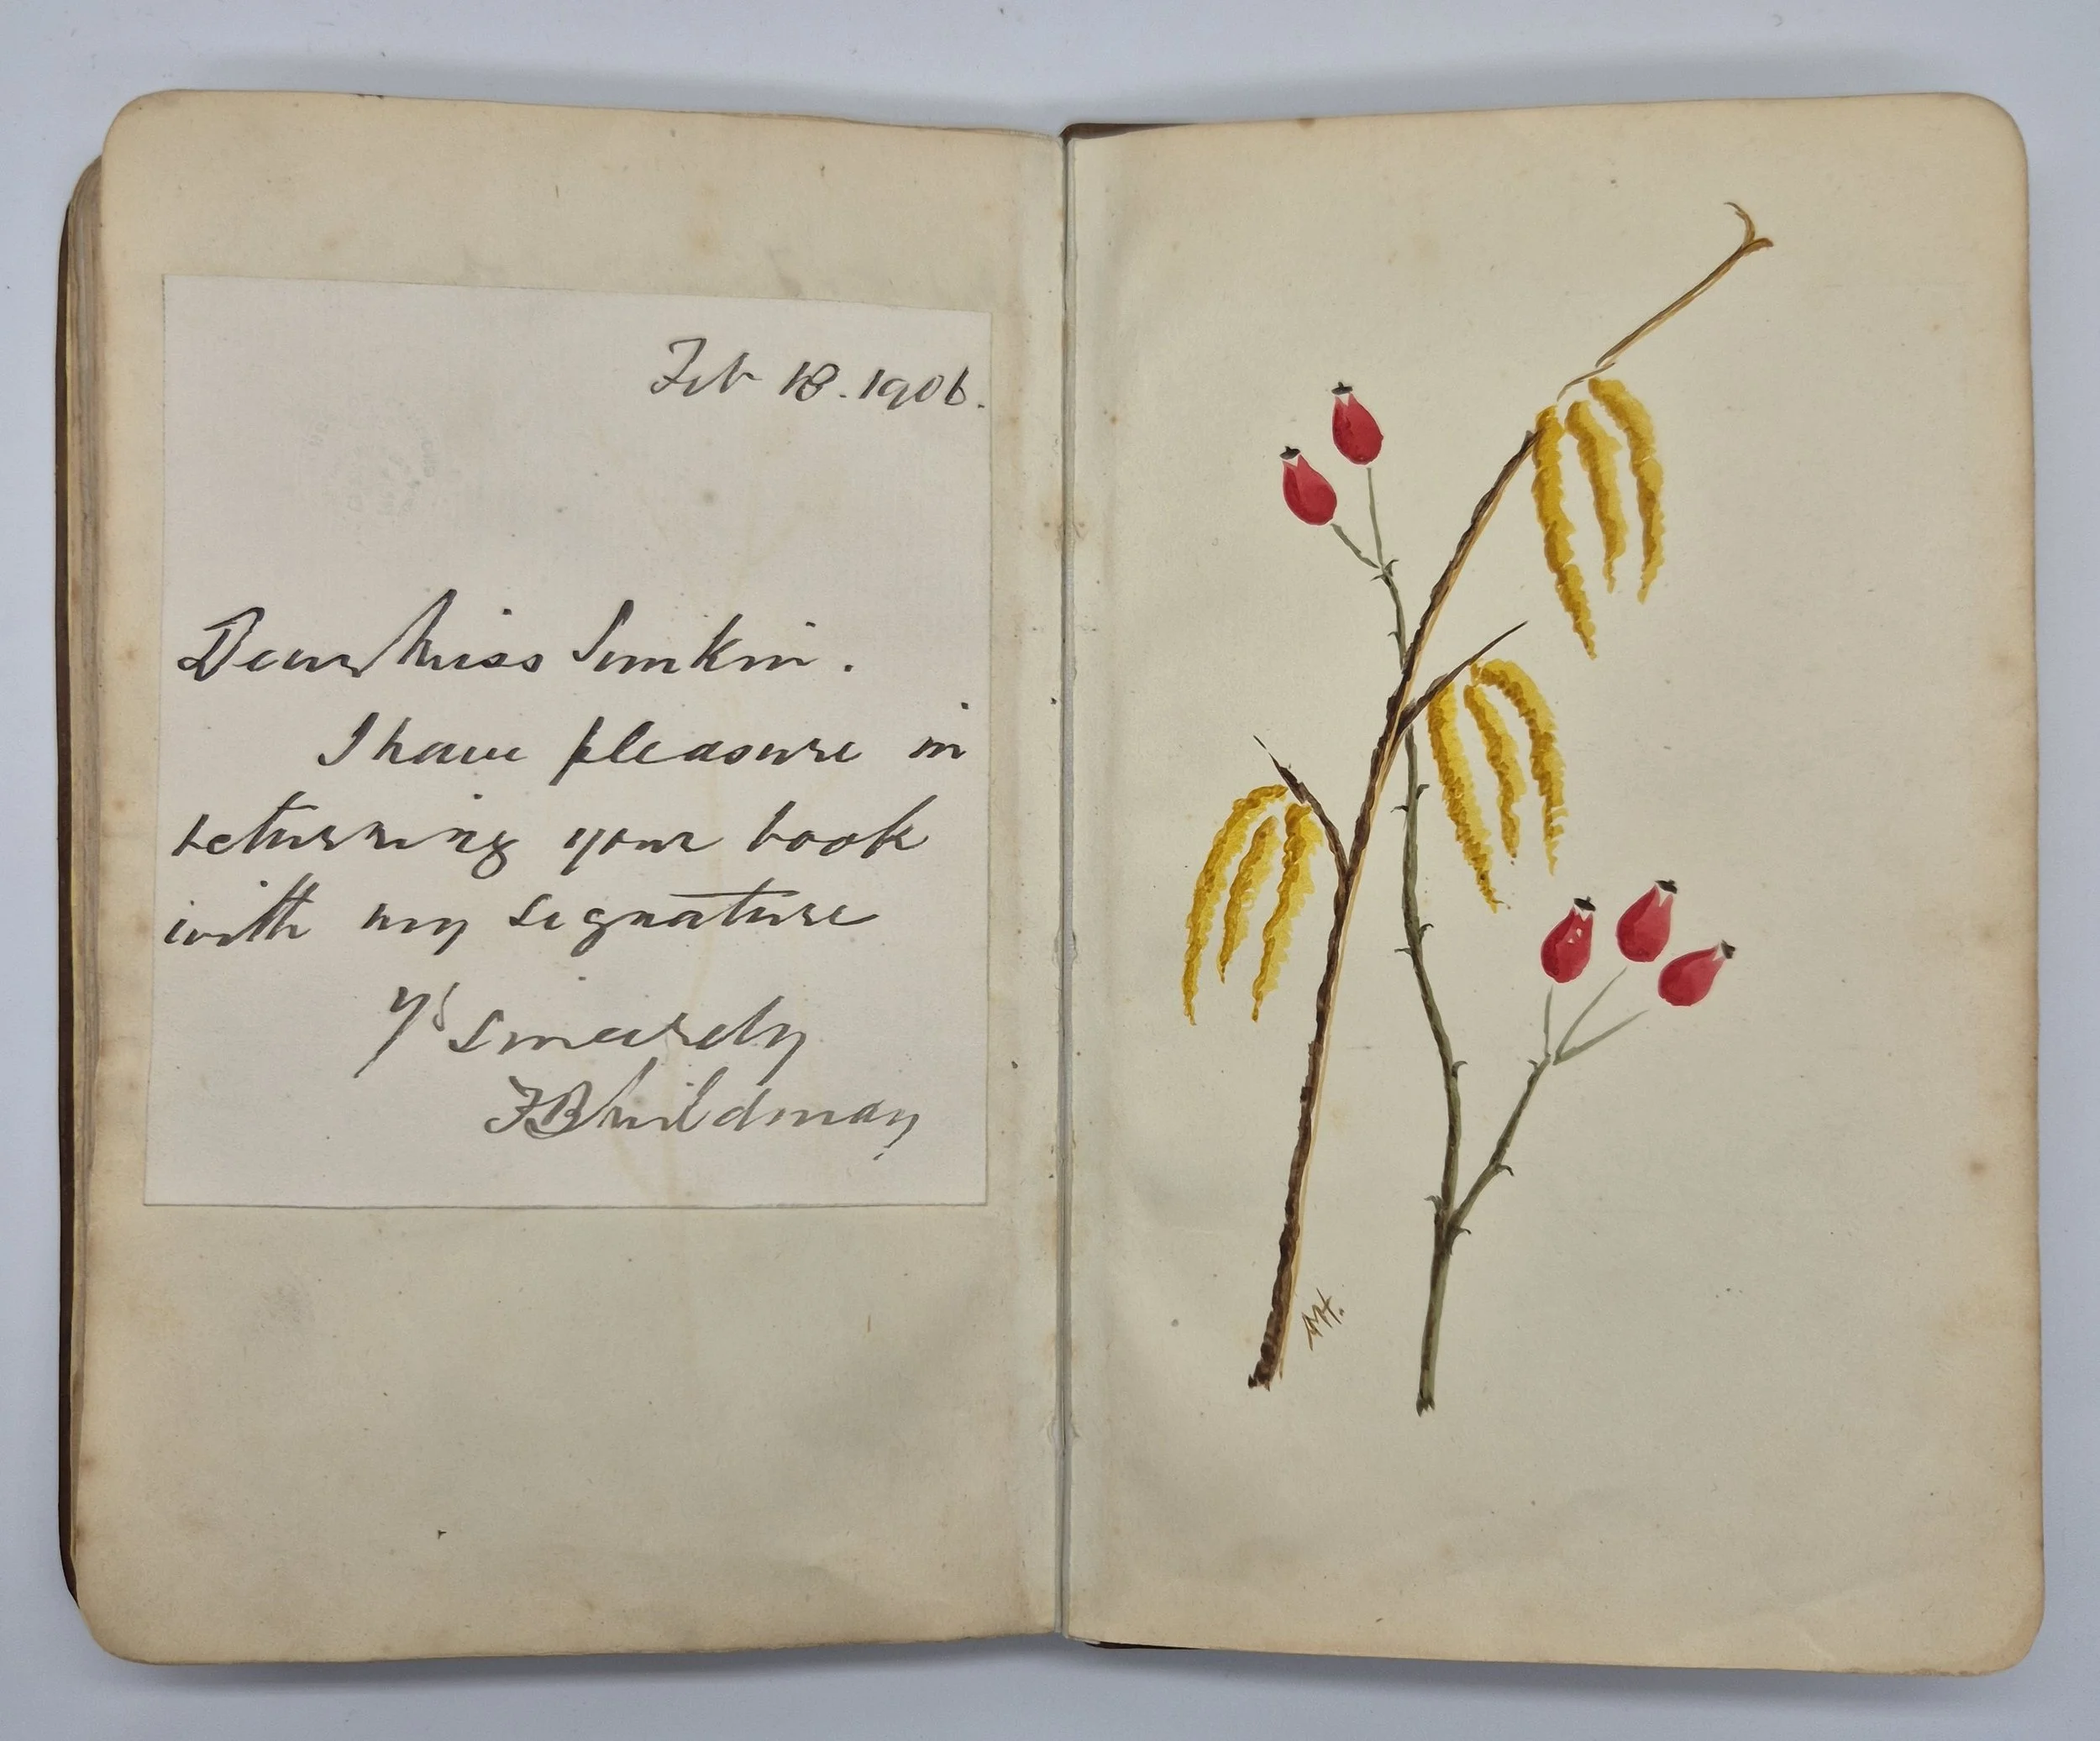 Feb 18. 1906.
Dear Miss Simkin.
I have pleasure in
returning your book
with my signature
Yrs sincerely
F B Mildmay